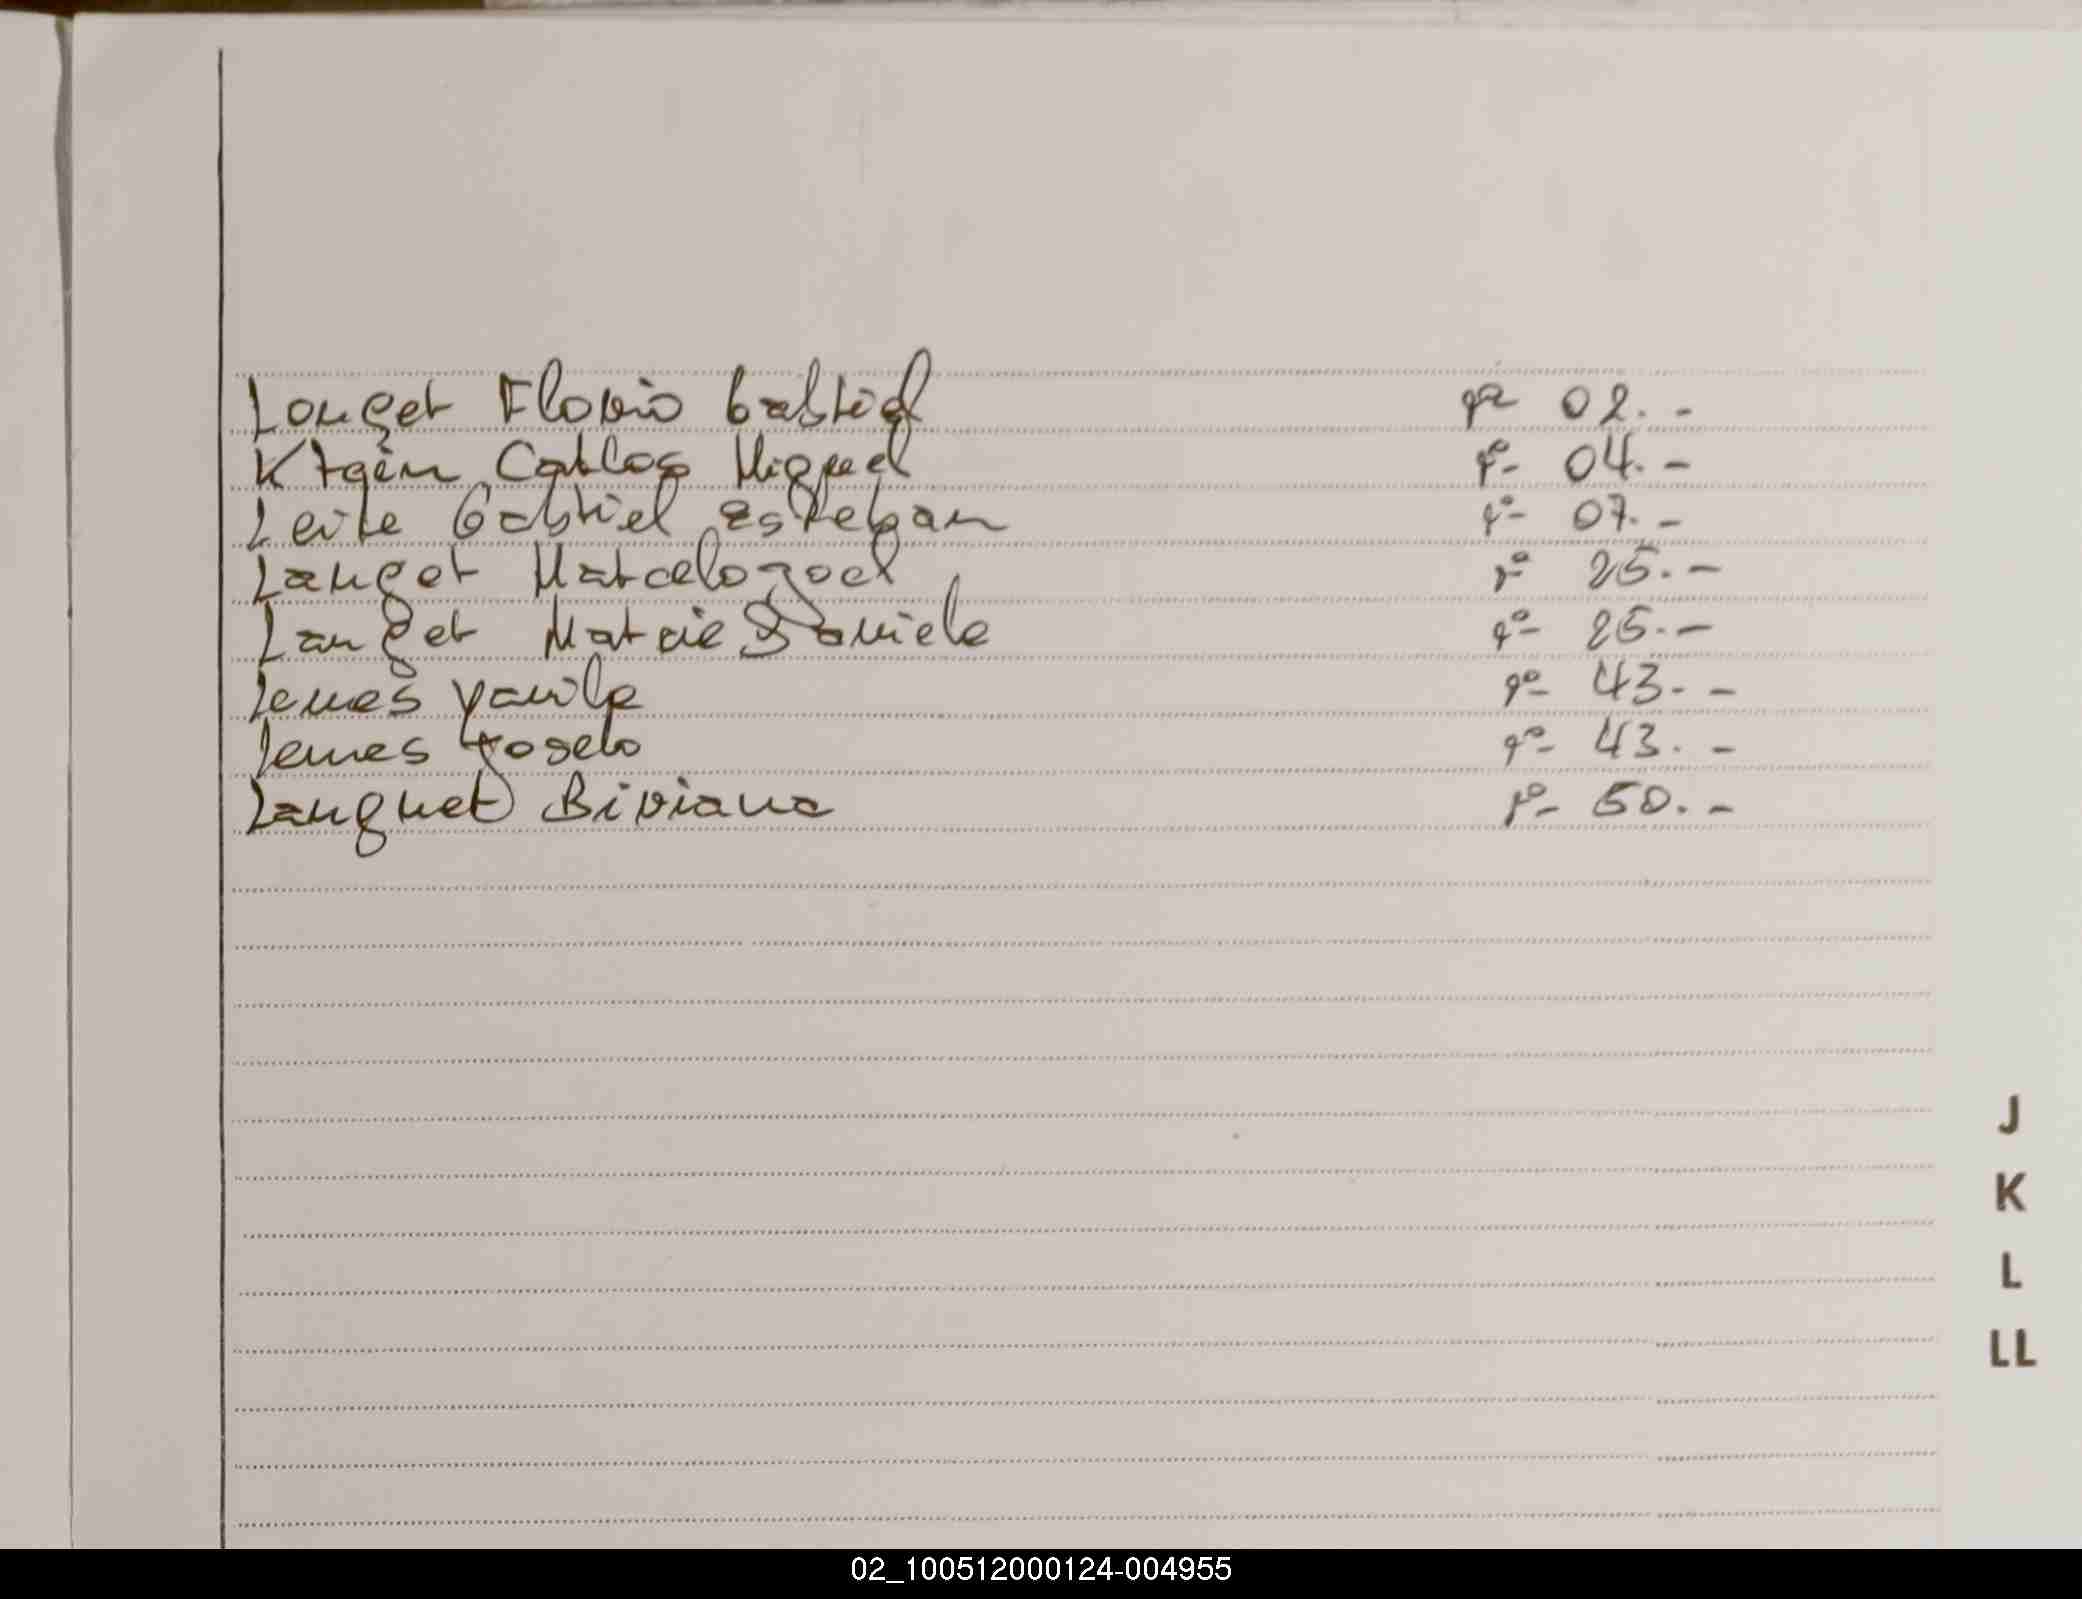 Longet Flavio Gabriel fº 02.-
Ktgèn Carlos Miguel fº- 04.-
Leite Gabriel Esteban fº- 07.-
Langet Marcelo Joel fº 25.-
Langet Matcie Daniela fº- 25.-
Lemes Yanila fº- 43.-
Lemes Roselo fº- 43.-
Languet Biviana fº- 50.-
J
K
L
LL
02_100512000124-004955